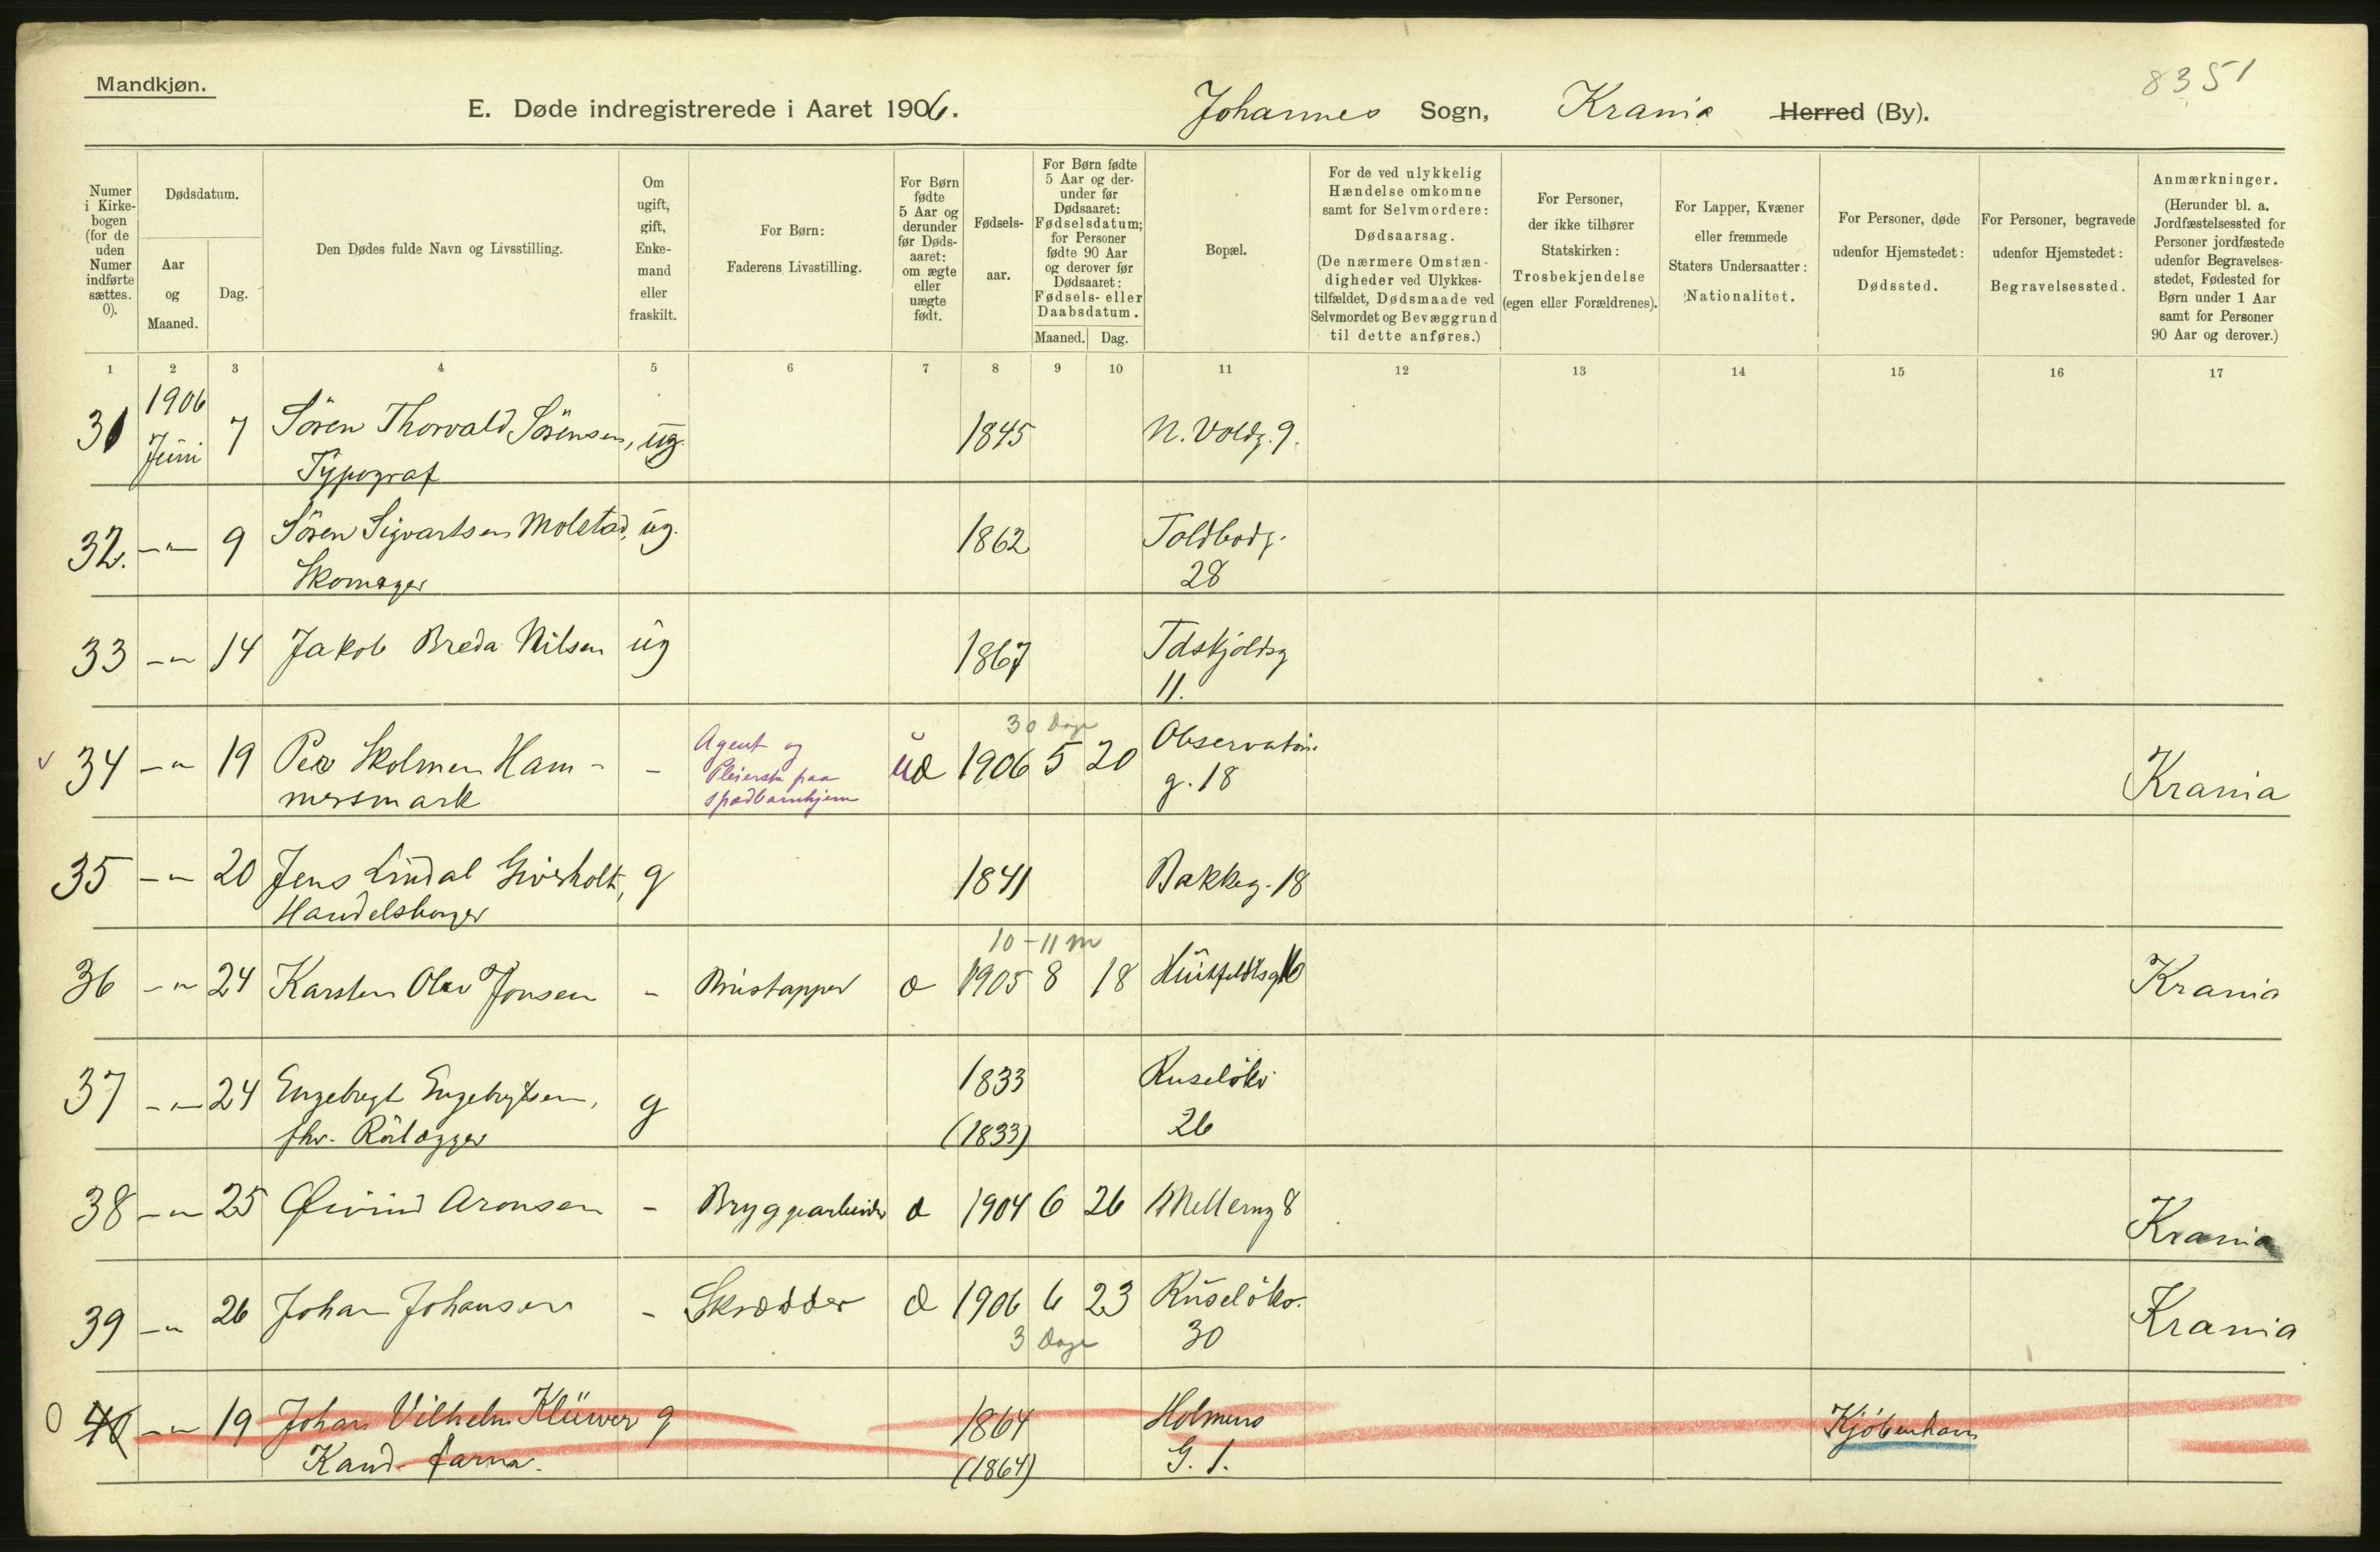 Mandkjøn.
8351
E. Døde indregistrerede i Aaret 1906. Johannes Sogn, Krania Herred (By).
Numer i Kirkebogen (for de uden Numer indførte sættes. 0).
Dødsdatum.
Aar og Maaned.
Dag.
Den Dødes fulde Navn og Livsstilling.
Om ugift, gift, Enkemand eller fraskilt.
For Børn: Faderens Livsstilling.
For Børn fødte 5 Aar og derunder før Dødsaaret: om ægte eller uægte født.
Fødselsaar.
For Børn fødte 5 Aar og derunder før Dødsaaret: Fødselsdatum; for Personer fødte 90 Aar og derover før Dødsaaret: Fødsels- eller Daabsdatum.
Maaned. Dag.
Bopæl.
For de ved ulykkelig Hændelse omkomne samt for Selvmordere: Dødsaarsag. (De nærmere Omstændigheder ved Ulykkestilfældet, Dødsmaade ved Selvmordet og Bevæggrund til dette anføres.)
For Personer, der ikke tilhører Statskirken: Trosbekjendelse (egen eller Forældrenes).
For Lapper, Kvæner eller fremmede Staters Undersaatter: Nationalitet.
For Personer, døde udenfor Hjemstedet: Dødssted.
For Personer, begravede udenfor Hjemstedet: Begravelsessted.
Anmærkninger. (Herunder bl. a. Jordfæstelsessted for Personer jordfæstede udenfor Begravelsesstedet, Fødested for Børn under 1 Aar samt for Personer 90 Aar og derover.)
1 2 3 4 5 6 7 8 9 10 11 12 13 14 15 16 17
1906
31 Juni 7 Sören Thorvald Sörensen, ug. 1845 N. Voldg. 9.
Typograf
32. -"- 9 Sören Sigvartsen Molstad, ug. 1862 Toldbodg.
Skomager 28
33 -"- 14 Jakob Breda Nilsen ug 1867 Tdskjoldsg
11.
30 Dage
34 -"- 19 Per Skolmen Ham- - Agent og ud 1906 5 20 Observatori-
mersmark Pleierske paa g. 18 Krania
spædbarnhjem
35 -"- 20 Jens Lindal Giverholt, g 1841 Bakkeg. 18
Handelsborger
10-11 m
36 -"- 24 Karsten Olav Jonsen - Brustapper d 1905 8 18 Huitfeldtsg 16 Krania
37 -"- 24 Engebregt Engebregtsen, g 1833 Ruselökv
fhv. Rörlægger (1833) 26
38 -"- 25 Øivind Aronsen - Bryggearbeider d 1904 6 26 Mellemg 8 Krania
39 -"- 26 Johan Johansen - Skrædder d 1906 6 23 Ruselökv. Krania
3 Dage 30
0 40 -"- 19 Johan Vilhelm Klüwer g 1864 Holmens Kjöbenhavn
Kand. farma. (1864) G. 1.